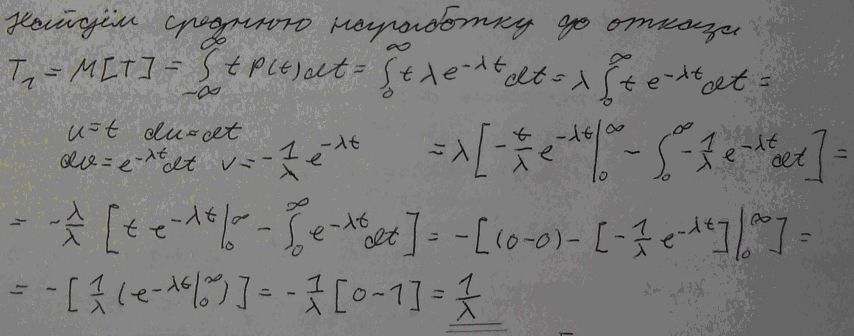 Найдём среднюю наработку до отказа
T₁ = M[T] = ∫_{-∞}^{∞} t P(t)dt = ∫_0^∞ t λe^{-λt}dt = λ∫_0^∞ t e^{-λt}dt =
u=t du=dt
dv=e^{-λt}dt v=-1/λ e^{-λt} = λ[-t/λ e^{-λt}|_0^∞ - ∫_0^∞ -1/λ e^{-λt}dt] =
= -λ/λ [t e^{-λt}|_0^∞ - ∫_0^∞ e^{-λt}dt] = -[(0-0)-[-1/λ e^{-λt}]|_0^∞] =
= -[1/λ (e^{-λt}|_0^∞)] = -1/λ [0-1] = 1/λ